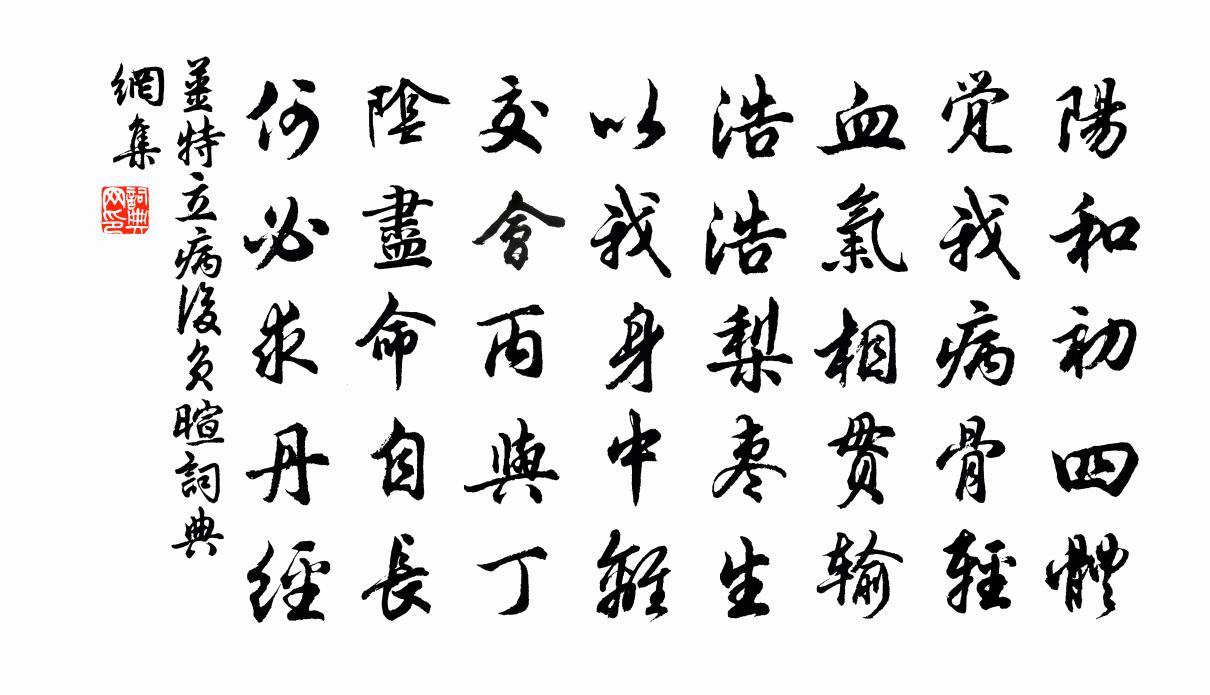 陽和初四體
覚我病骨輕
血氣相貫輸
浩浩梨棗生
以我身中離
交會丙與丁
陰盡命自長
何必求丹經
姜特立病後負暄詞典
網集
詞典网印